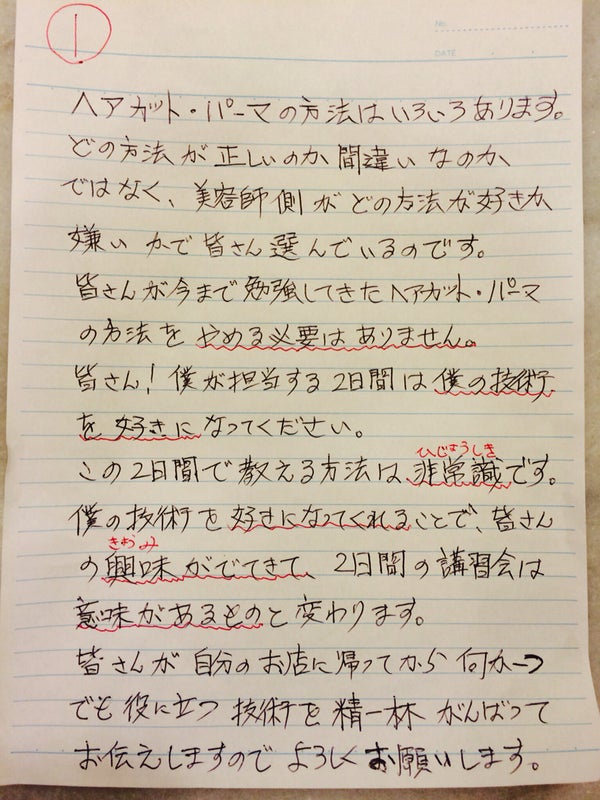 1
No.
DATE
ヘアカット・パーマの方法はいろいろあります。
どの方法が正しいのか間違いなのか
ではなく、美容師側がどの方法が好きか
嫌いかで皆さん選んでいるのです。
皆さんが今まで勉強してきたヘアカット・パーマ
の方法をやめる必要はありません。
皆さん!僕が担当する2日間は僕の技術
を好きになってください。
この2日間で教える方法は、非常識です。
ひじょうしき
僕の技術を好きになってくれることで、皆さん
の興味がでてきて、2日間の講習会は
きょうみ
意味があるものと変わります。
皆さんが自分のお店に帰ってから何か一つ
でも役に立つ技術を精一杯がんばって
お伝えしますのでよろしくお願いします。